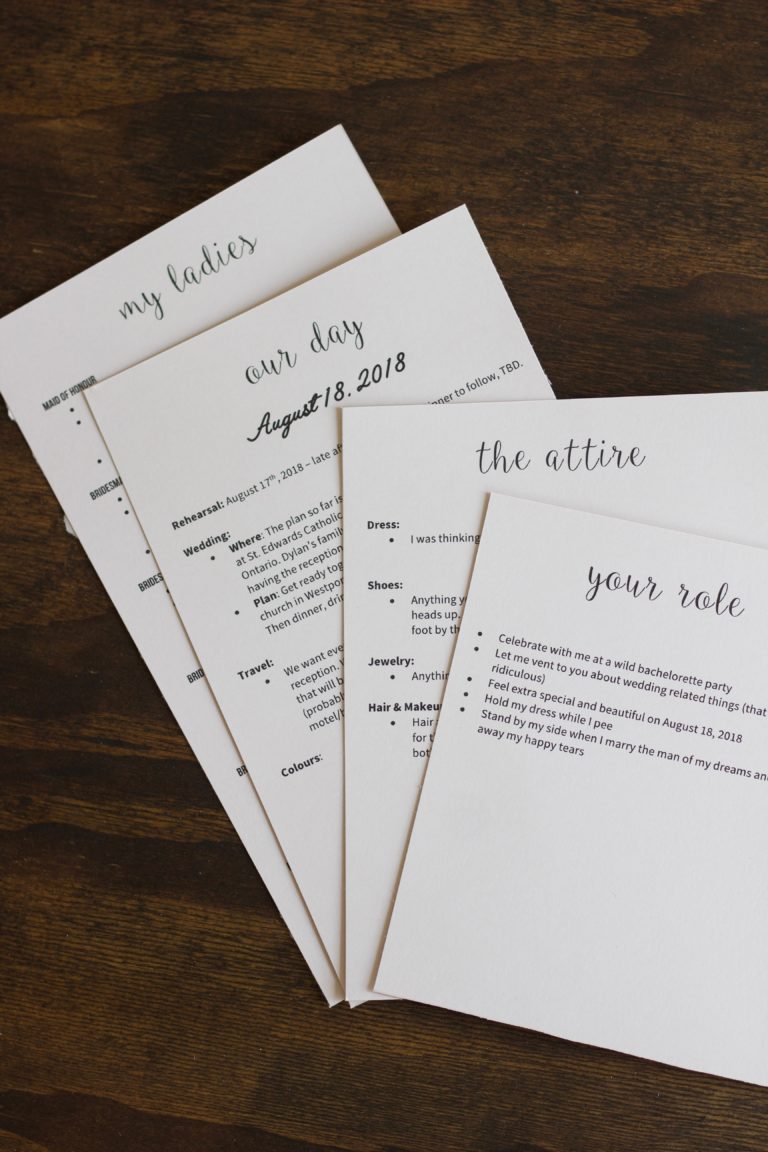 my ladies
MAID OF HONOUR
our day
August 18, 2018
inner to follow, TBD.
Rehearsal: August 17th, 2018 – late
Wedding:
Where: The plan so far is
at St. Edwards Catholic
Ontario. Dylan's family
having the reception
Plan: Get ready
church in
Then dinner,
Travel:
We want
reception.
that will
Colours:
the attire
Dress:
I was thinking
Shoes:
Anything
heads up.
foot by
Jewelry:
Hair &
Hair
for
your role
Celebrate with me at a wild bachelorette party
Let me vent to you about wedding related things (that
ridiculous)
Feel extra special and beautiful on August 18, 2018
Hold my dress while I pee
Stand by my side when I marry the man of my dreams and
away my happy tears